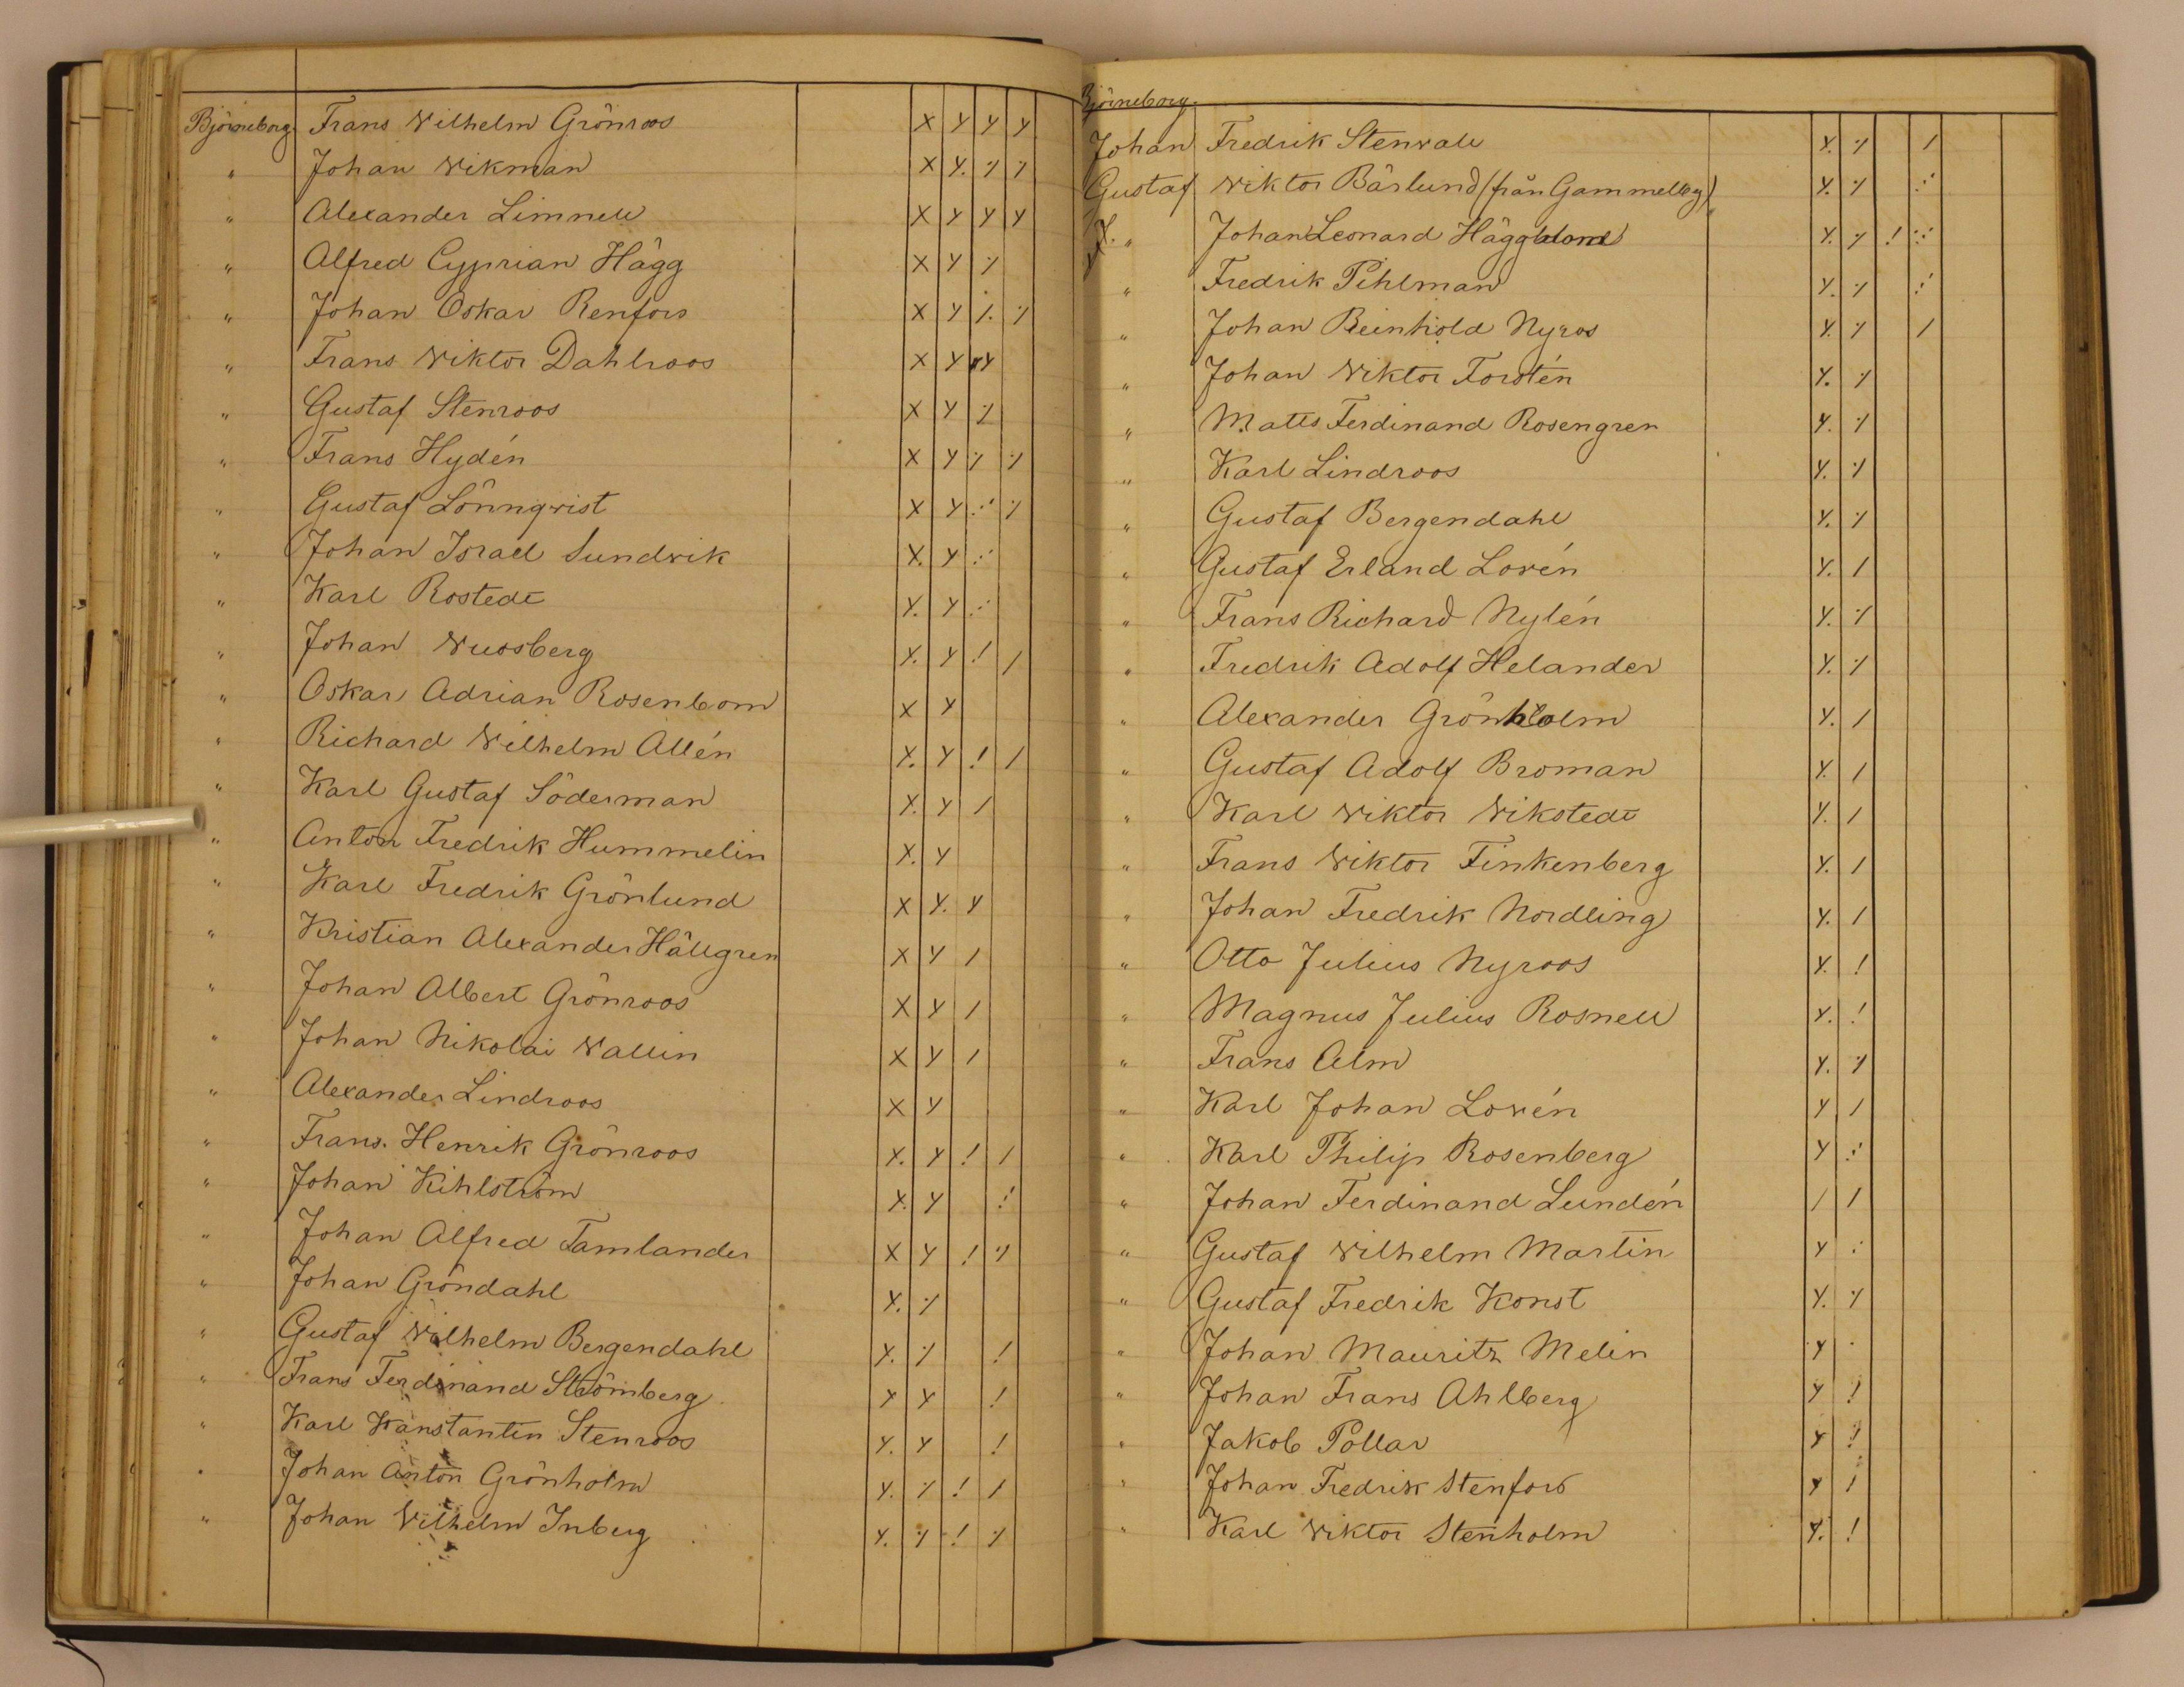 Björneborg. Frans Wilhelm Grönroos X Y Y Y
" Johan Wikman X Y. ·/· ·/·
" Alexander Limnell X Y Y Y
" Alfred Cyprian Hägg X Y ·/·
" Johan Oskar Renfors X Y ·/. ·/·
" Frans Wiktor Dahlroos X Y Y
" Gustaf Stenroos X Y ·/·
" Frans Hydén X Y ·/· ·/·
" Gustaf Lönnqvist X Y ·/· ·/·
" Johan Israel Sundvik X. Y ·/·
" Karl Rostedt Y. Y ·/·
" Johan Wussberg Y. Y ! /
" Oskar Adrian Rosenbom X Y
" Richard Wilhelm Allén X. Y ! /
" Karl Gustaf Söderman X. Y /
" Anton Fredrik Hummelin X. Y
" Karl Fredrik Grönlund X Y. Y
" Kristian Alexander Hällgren X Y /
" Johan Albert Grönroos X Y /
" Johan Nikolai Wallin X Y /
" Alexander Lindroos X Y
" Frans Henrik Grönroos Y. Y ! /
" Johan Kihlström X. Y ·!
" Johan Alfred Tamlander X Y ! ·/·
" Johan Gröndahl X. ·/·
" Gustaf Wilhelm Bergendahl Y. ·/· !
" Frans Ferdinand Strömberg Y Y !
" Karl Konstantin Stenroos Y. Y !
" Johan Anton Grönholm Y. ·/· ! /
" Johan Wilhelm Inberg Y. ·/· ! ·/·
Björneborg.
Johan Fredrik Stenvall Y. ·/· /
Gustaf Wiktor Bärlund (från Gammelby) Y. ·/· ·/·
" Johan Leonard Häggblom Y. ·/· ! ·/·
" Fredrik Pihlman Y. ·/· ·/·
" Johan Reinhold Nyros Y. ·/· /
" Johan Wiktor Forstén Y. ·/·
" Matts Ferdinand Rosengren Y. ·/·
" Karl Lindroos Y. ·/·
" Gustaf Bergendahl Y. ·/·
" Gustaf Erland Lovén Y. /
" Frans Richard Nylén Y. ·/·
" Fredrik Adolf Helander Y. ·/·
" Alexander Grönholm Y. /
" Gustaf Adolf Broman Y. /
" Karl Wiktor Wikstedt Y. /
" Frans Wiktor Finkenberg Y. /
" Johan Fredrik Nordling Y. /
" Otto Julius Nyroos Y. !
" Magnus Julius Rosnell Y. !
" Frans Alm Y. ·/·
" Karl Johan Lovén Y /
" Karl Philip Rosenberg Y ·/·
" Johan Ferdinand Lundén / /
" Gustaf Wilhelm Martin Y ·/·
" Gustaf Fredrik Konst Y. ·/·
" Johan Mauritz Melin Y ·
" Johan Frans Ahlberg Y !
" Jakob Pollar Y !
" Johan Fredrik Stenfors Y /
" Karl Wiktor Stenholm Y. !